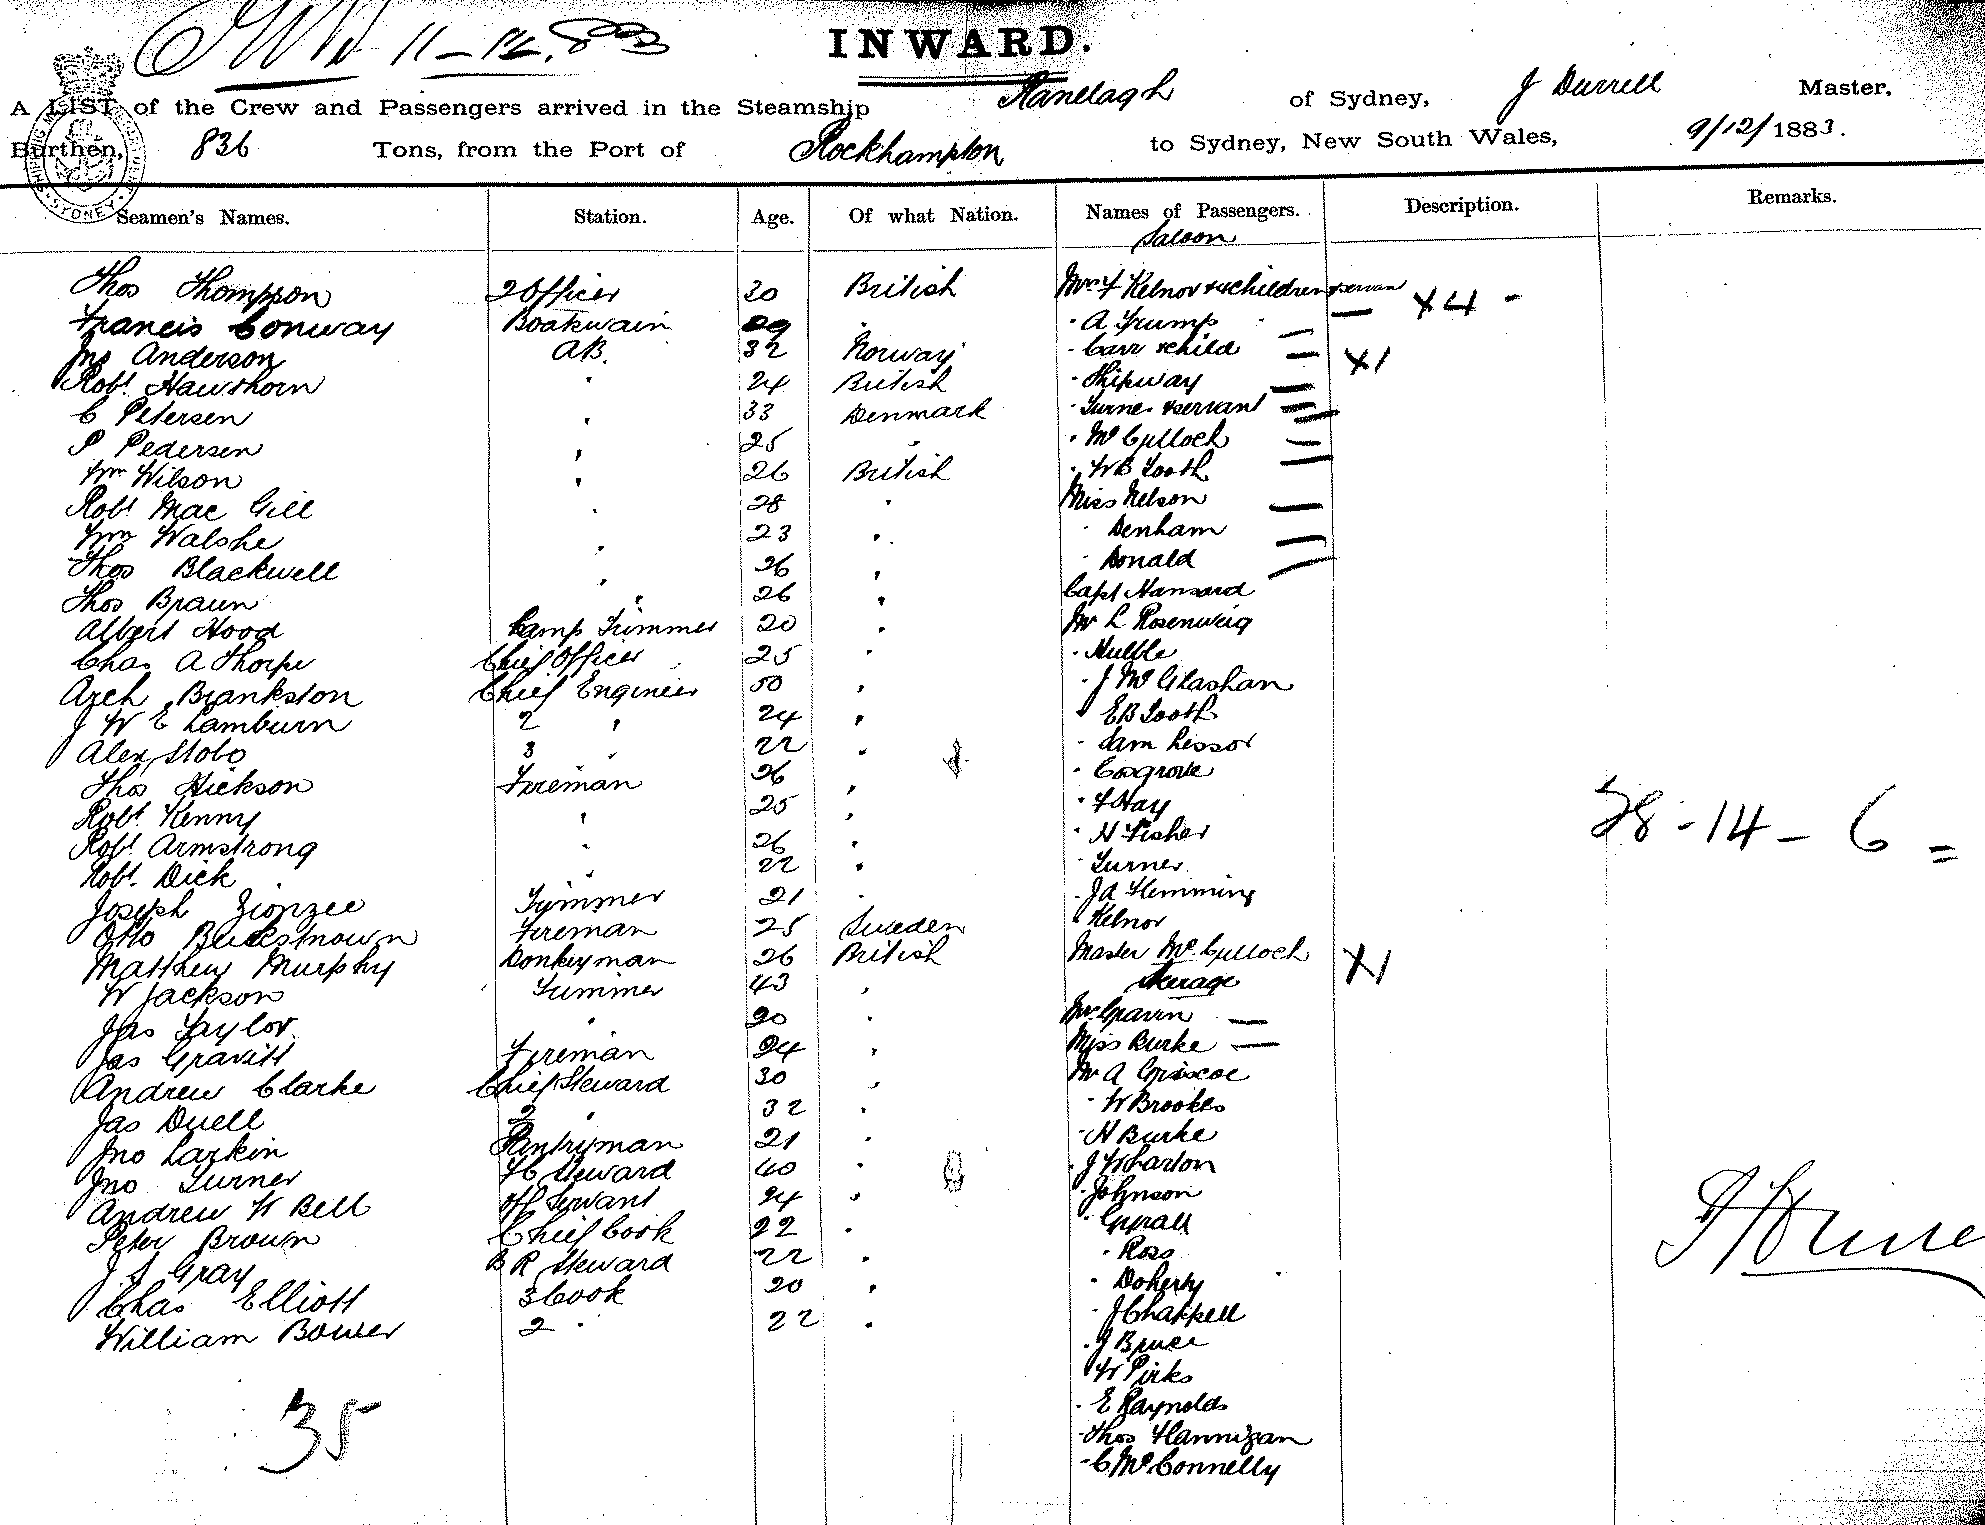 11-12.83
INWARD.
A LIST of the Crew and Passengers arrived in the Steamship Ranelagh of Sydney, J Durrell Master,
Burthen, 836 Tons, from the Port of Rockhampton to Sydney, New South Wales, 9/12/1883.
Seamen's Names. Station. Age. Of what Nation. Names of Passengers. Description. Remarks.
Saloon
Thos Thompson 2 Officer 30 British Mrs F Kelnor & 4 children & servan X4 -
Francis Conway Boatswain 29 " A Trump
Jno Anderson AB. 32 Norway " Carr & child X1
Robt Hawthorn " 24 British " Shipway
C Petersen " 33 Denmark " Turner & servant
P Pedersen " 25 " " McCulloch
Wm Wilson " 26 British " W B Tooth
Robt Mac Gill " 28 " Miss Nelson
Wm Walshe " 23 " " Denham
Thos Blackwell " 26 " " Donald
Thos Braun " 26 " Capt Hansard
Albert Hood Lamp Trimmer 20 " Mr L Rosenweig
Chas A Thorpe Chief Officer 25 " "
Arch Brankston Chief Engineer 50 " " J McGlashan
J W E Lamburn 2 " 24 " " E B Tooth
Alex Stobo 3 " 22 " " Sam Lissor
Thos Hickson Fireman 26 " " Cosgrove
Robt Kenny " 25 " " F Hay
Robt Armstrong " 26 " " H Fisher
Robt Dick " 22 " " Turner
Joseph Trimmer 21 " " J A Flemming
Otto Fireman 25 Sweden " Kelnor
Matthew Murphy Donkeyman 26 British Master McCulloch X1
W Jackson Trimmer 43 " Steerage
Jas Taylor " 20 " Mr Gavin
Jas Gravitt Fireman 24 " Miss Burke
Andrew Clarke Chief Steward 30 " Mr A Griscoe
Jas Duell 2 " 32 " " W Brookes
Jno Larkin Pantryman 21 " " H Burke
Jno Turner FC Steward 40 " " J Wharton
Andrew W Bell Off Servant 24 " " Johnson
Peter Brown Chief Cook 22 " "
J S Gray B R Steward 22 " " Ross
Chas Elliott 3 Cook 20 " " Doherty
William Bower 2 " 22 " " J Chappell
" J Bruce
" W Pirks
" E Raynolds
" Thos Hannigan
" C McConnelly
35
28-14-6=